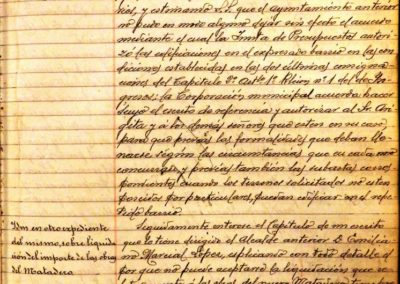 chos, y estimando V.E. que el ayuntamiento anterior
no pudo en modo alguno dejar sin efecto el acuerdo
mediante el cual la Junta de Presupuestos autori-
zó las edificaciones en el expresado barrio en las con-
diciones establecidas en las dos últimas consignacio-
nes del Capítulo 9º Artº 1º
gresos; la Corporación municipal acuerda hacer
suyo el escrito de referencia y autorizar al Sr.
y a los demás señores que esten en su caso
para que previas las formalidades que deban lle-
narse según las circunstancias que en cada uno
concurran, y previas también las subastas corres-
pondientes cuando los terrenos solicitados no esten
poseidos por particulares, puedan edificar en el refe-
rido barrio.
Idem en otro expediente
del mismo, sobre liquida-
ción del importe de las obras
del Matadero
Seguidamente entérase el Capítulo de un escrito
que le tiene dirigido el Alcalde anterior D. Emilia-
no Marcual López, esplicando con todo detalle el
por que no puede aceptarse la liquidación que se